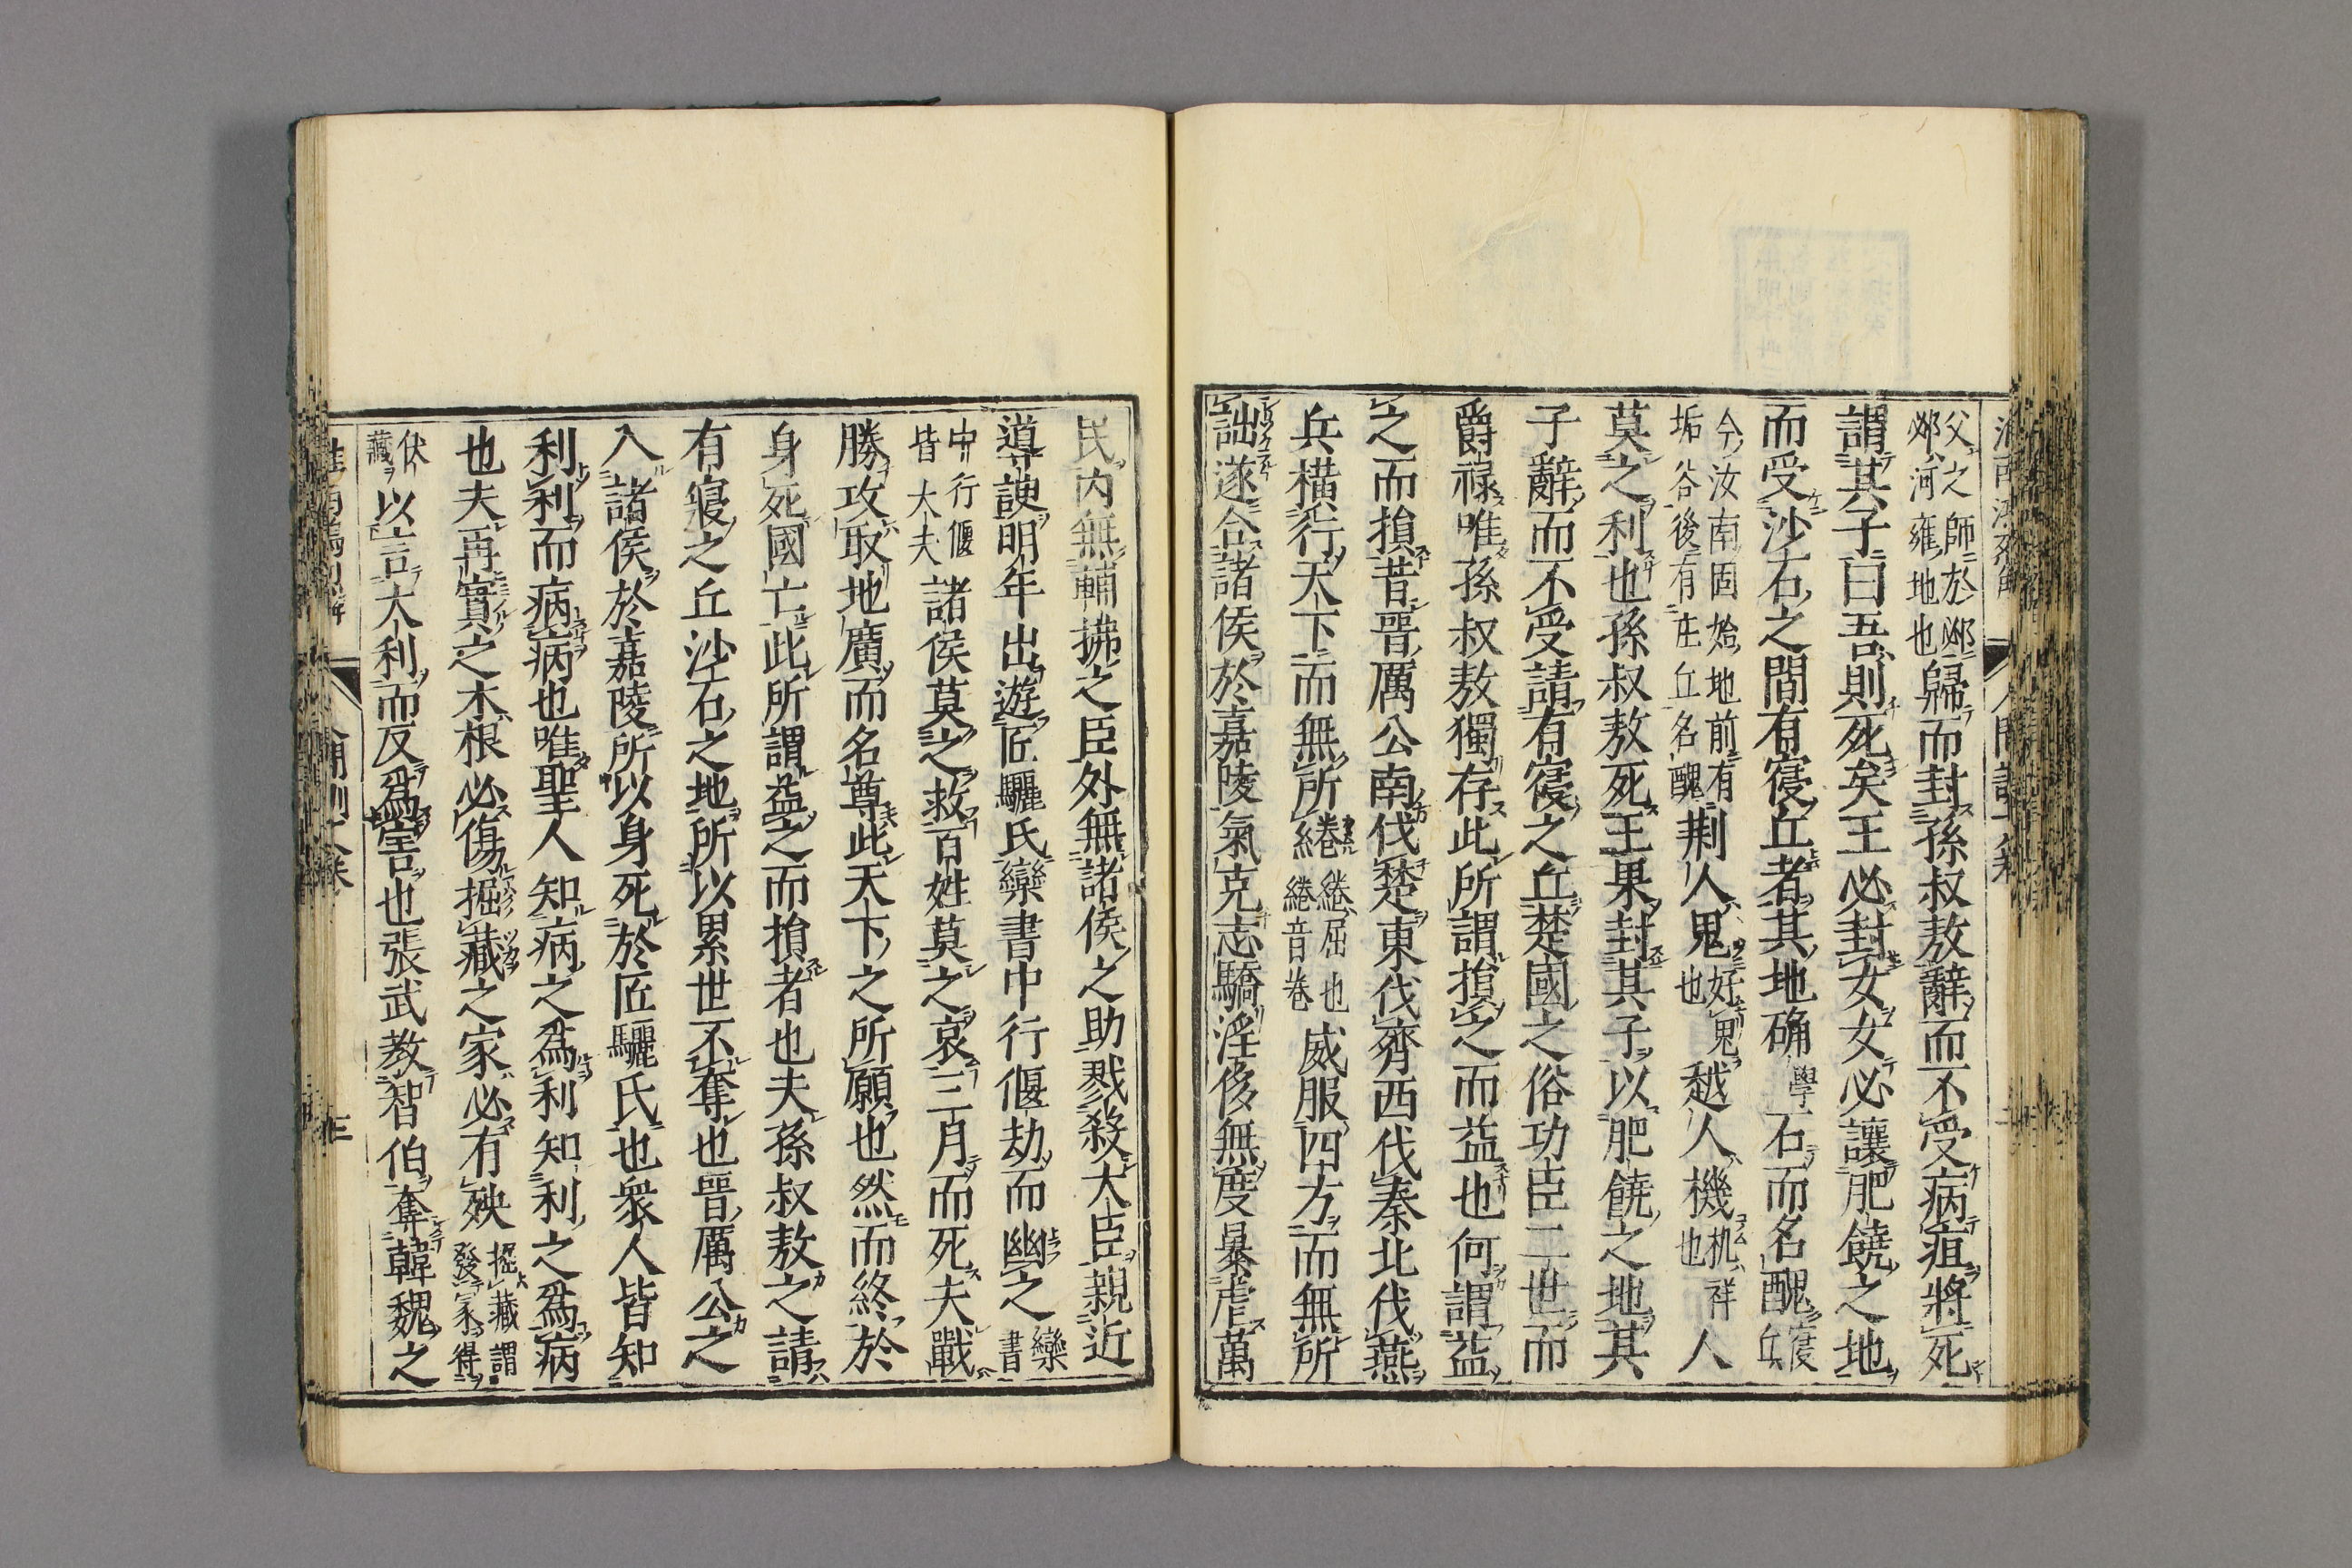 父之師於邲邲河雍地也歸而封孫叔敖辭而不受病疽將死
謂其子曰吾則死矣王必封女女必讓肥饒之地
而受沙石之間有寑丘者其地确學石而名醜寑丘
今汝南固始地前有垢谷後有庄丘名醜荆人鬼好鬼也越人機机祥也人
莫之利也孫叔敖死王果封其子以肥饒之地其
子辭而不受請有寑之丘楚國之俗功臣二世而
爵祿唯孫叔敖獨存此所謂損之而益也何謂益
之而損昔晉厲公南伐楚東伐齊西伐秦北伐燕
兵橫行天下而無所綣綣屈也綣音卷威服四方而無所
詘遂合諸侯於嘉陵氣充志驕淫侈無度暴虐萬
民內無輔拂之臣外無諸侯之助戮殺大臣親近
導諛明年出遊匠驪氏欒書中行偃劫而幽之欒書
中行偃皆大夫諸侯莫之救百姓莫之哀三月而死夫戰
勝攻取地廣而名尊此天下之所願也然而終於
身死國亡此所謂益之而損者也夫孫叔敖之請
有寑之丘沙石之地所以累世不奪也晉厲公之
入諸侯於嘉陵所以身死於匠驪氏也衆人皆知
利利而病病也唯聖人知病之爲利知利之爲病
也夫再實之木根必傷掘藏之家必有殃掘藏謂發冢得
伏藏以言大利而反爲害也張武教智伯奪韓魏之